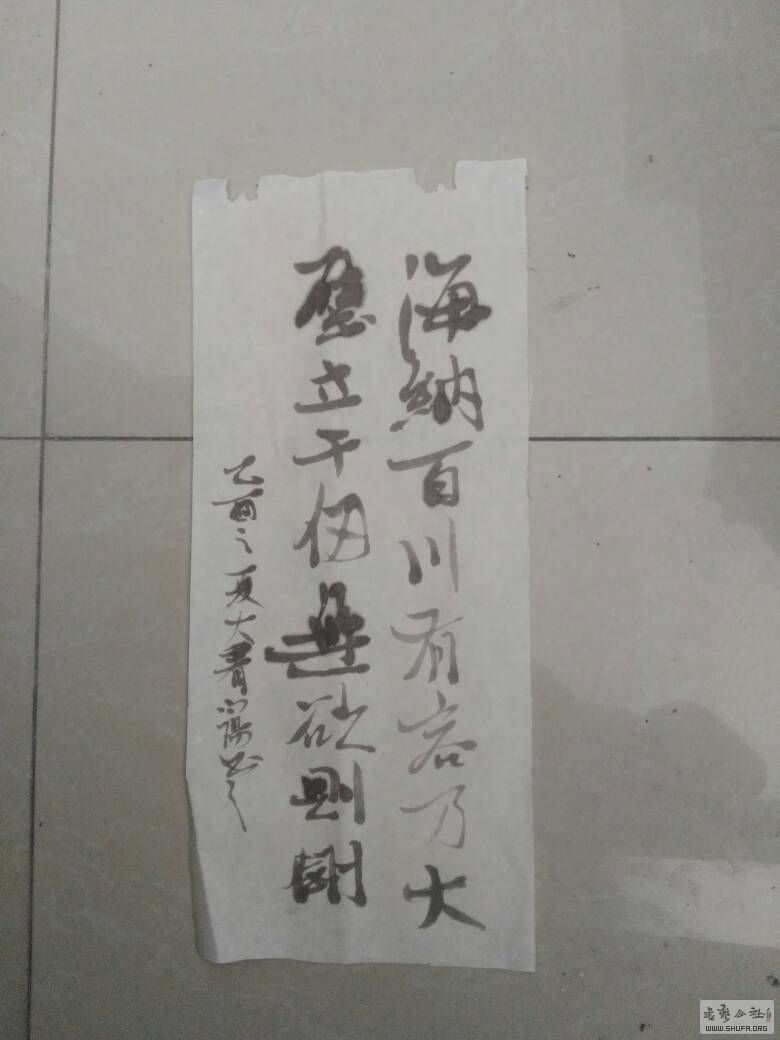 海納百川有容乃大
壁立千仞無欲則剛
乙酉之夏大署
書藝公社
WWW.SHUFA.ORG